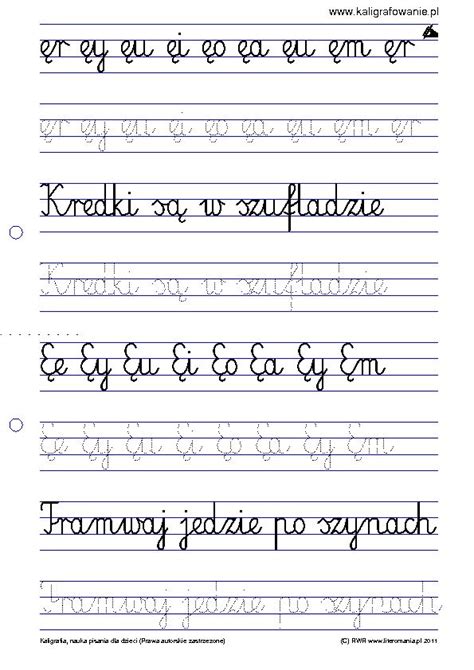 www.kaligrafowanie.pl
ęr ęy ęu ęi ęo ęa ęu ęm ęr
ęr ęy ęu ęi ęo ęa ęu ęm ęr
Kredki są w szufladzie
Kredki są w szufladzie
Ęe Ęy Ęu Ęi Ęo Ęa Ęy Ęm
Ęe Ęy Ęu Ęi Ęo Ęa Ęy Ęm
Tramwaj jedzie po szynach
Tramwaj jedzie po szynach
Kaligrafia, nauka pisania dla dzieci (Prawa autorskie zastrzeżone) (C) RWR www.literomania.pl 2011